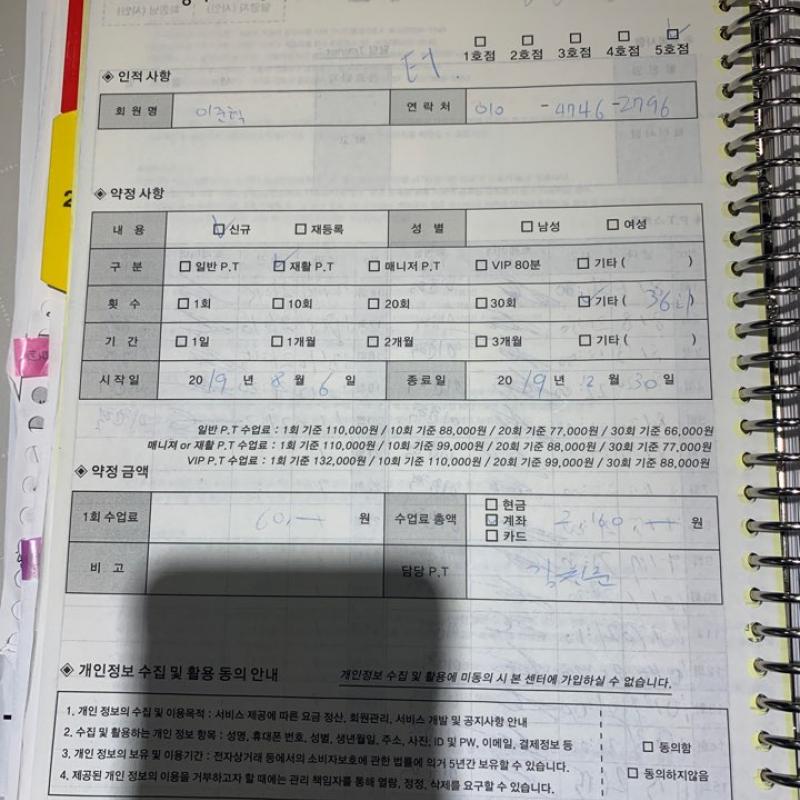 1호점 2호점 3호점 4호점 5호점
ET.
◈ 인적사항
회원명 이준혁 연락처 010 - 4746 - 2796
◈ 약정사항
내용 신규 재등록 성별 남성 여성
구분 일반 P.T 재활 P.T 매니저 P.T VIP 80분 기타 ( )
횟수 1회 10회 20회 30회 기타 ( 36회 )
기간 1일 1개월 2개월 3개월 기타 ( )
시작일 2019년 8월 6일 종료일 2019년 12월 30일
일반 P.T 수업료 : 1회 기준 110,000원 / 10회 기준 88,000원 / 20회 기준 77,000원 / 30회 기준 66,000원
매니져 or 재활 P.T 수업료 : 1회 기준 110,000원 / 10회 기준 99,000원 / 20회 기준 88,000원 / 30회 기준 77,000원
VIP P.T 수업료 : 1회 기준 132,000원 / 10회 기준 110,000원 / 20회 기준 99,000원 / 30회 기준 88,000원
◈ 약정 금액
현금
1회 수업료 60,- 원 수업료 총액 계좌 2,160,- 원
카드
비고 담당 P.T
◈ 개인정보 수집 및 활용 동의 안내 개인정보 수집 및 활용에 미동의 시 본 센터에 가입하실 수 없습니다.
1. 개인 정보의 수집 및 이용목적 : 서비스 제공에 따른 요금 정산, 회원관리, 서비스 개발 및 공지사항 안내
2. 수집 및 활용하는 개인 정보 항목 : 성명, 휴대폰 번호, 성별, 생년월일, 주소, 사진, ID 및 PW, 이메일, 결제정보 등
3. 개인 정보의 보유 및 이용기간 : 전자상거래 등에서의 소비자보호에 관한 법률에 의거 5년간 보유할 수 있습니다.
4. 제공된 개인 정보의 이용을 거부하고자 할 때에는 관리 책임자를 통해 열람, 정정, 삭제를 요구할 수 있습니다.
동의함
동의하지않음